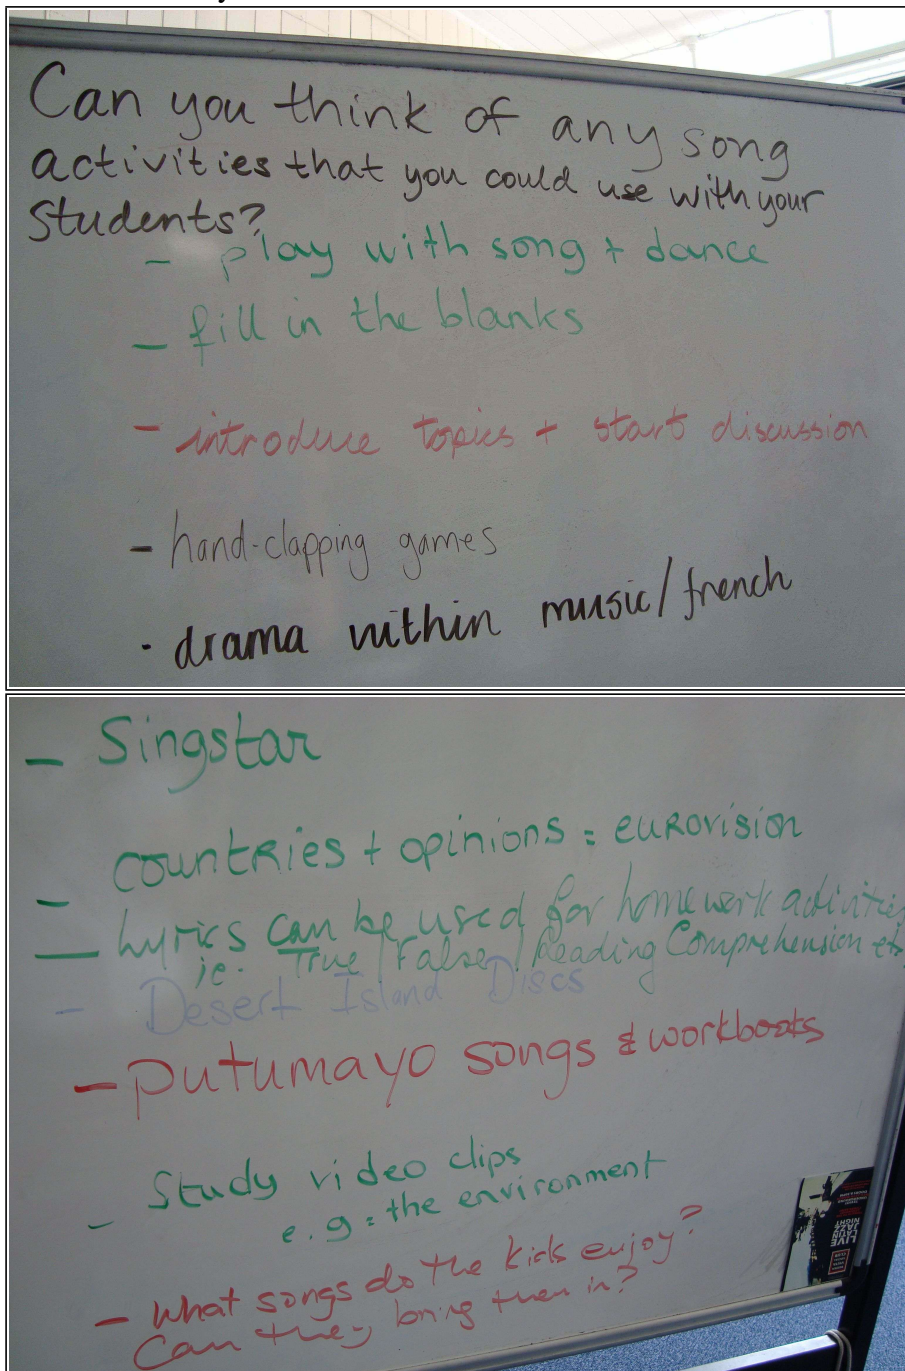 Can you think of any song
activities that you could use with your
Students?
- play with song + dance
- fill in the blanks
- introduce topics + start discussion
- hand-clapping games
· drama within music/french
- Singstar
- countries + opinions = eurovision
- Lyrics can be used for homework activities
ie. True/False/Reading Comprehension etc
- Desert Island Discs
- Putumayo songs & workbooks
- Study video clips
e.g = the environment
- What songs do the kids enjoy?
Can they bring them in?
LIVE
JAZZ
NIGHT